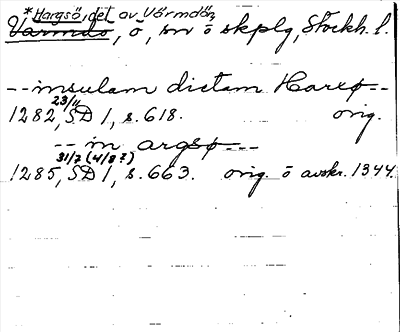 *Hargsö, del av Värmdön,
Värmdö, ö, sn ö skplg, Stockh. l.
-- insulam dictam Harxø --
1282 23/11, SD 1, s. 618. orig.
-- in argsø ---
1285 31/7 (4/8?), SD 1, s. 663. orig. ö avskr. 1344.